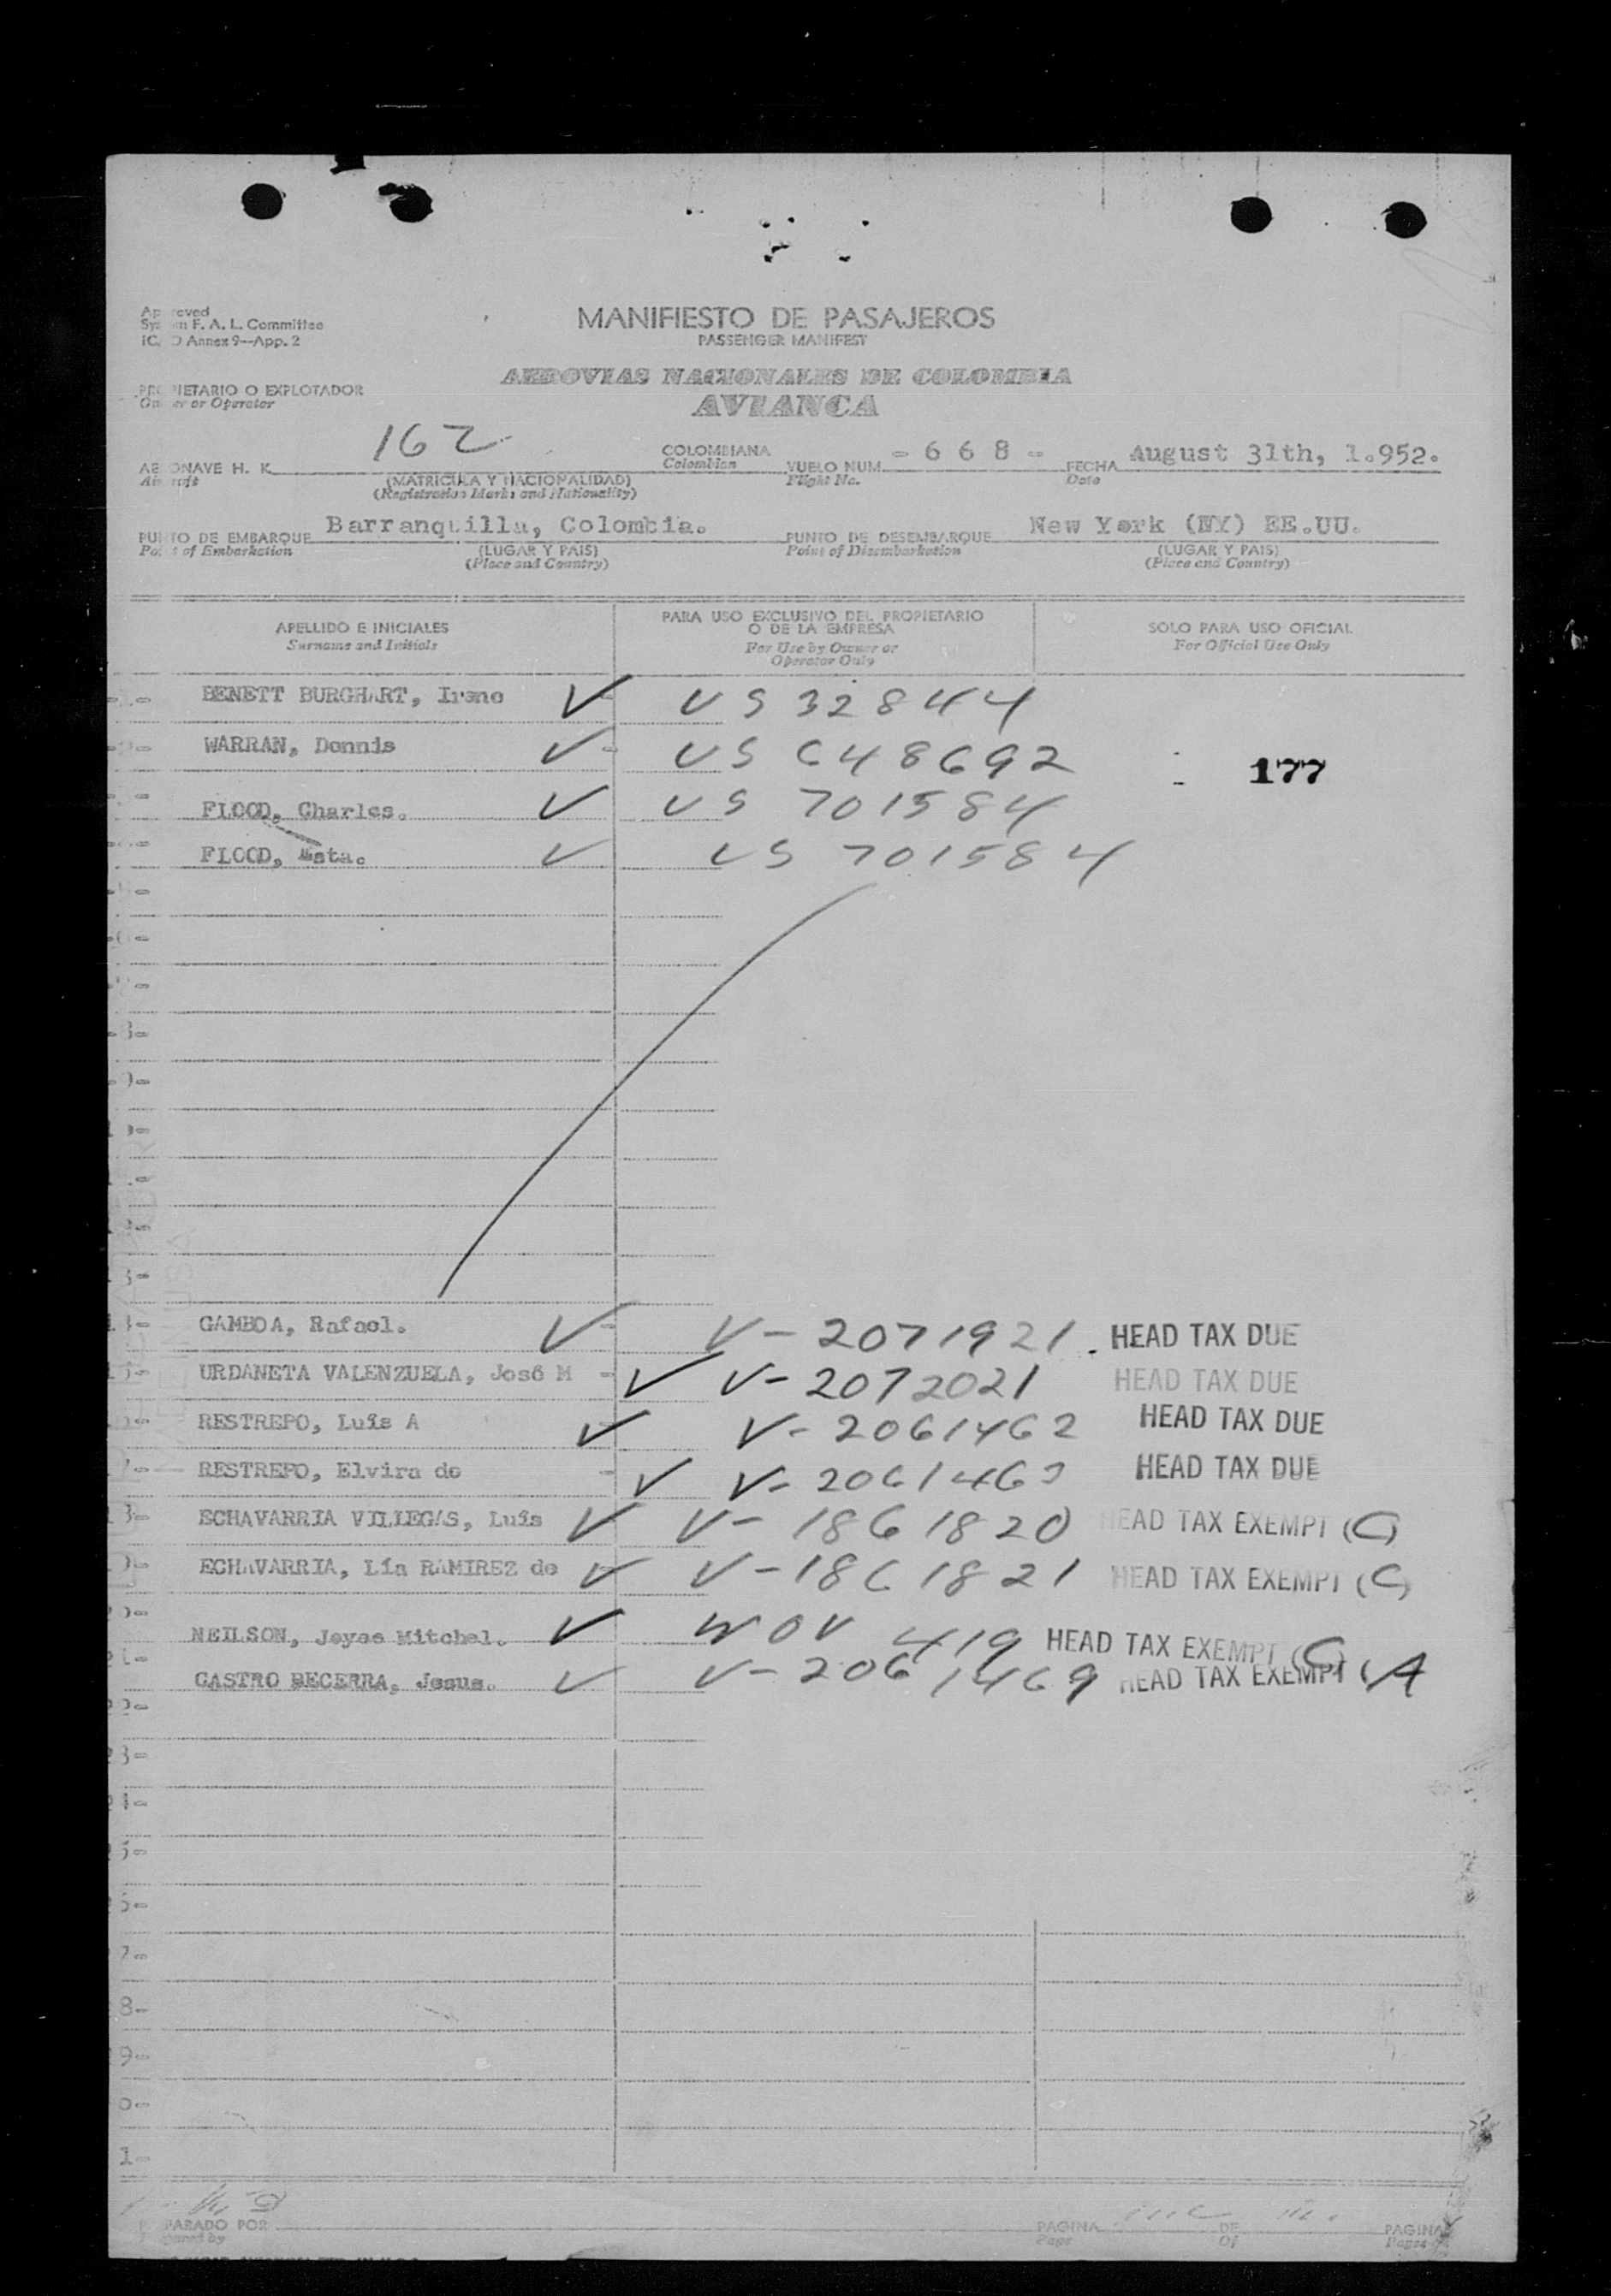 Approved
System F. A. L. Committee
ICAO Annex 9—App. 2
MANIFIESTO DE PASAJEROS
PASSENGER MANIFEST
PROPIETARIO O EXPLOTADOR
Owner or Operator
AEROVIAS NACIONALES DE COLOMBIA
AVIANCA
AERONAVE H. K. 162 COLOMBIANA VUELO NUM. - 6 6 8 - FECHA August 31th, 1.952.
Aircraft Colombian Flight No. Date
(MATRICULA Y NACIONALIDAD)
(Registration Marks and Nationality)
PUNTO DE EMBARQUE Barranquilla, Colombia. PUNTO DE DESEMBARQUE New York (NY) EE.UU.
Point of Embarkation (LUGAR Y PAIS) Point of Disembarkation (LUGAR Y PAIS)
(Place and Country) (Place and Country)
APELLIDO E INICIALES PARA USO EXCLUSIVO DEL PROPIETARIO O DE LA EMPRESA SOLO PARA USO OFICIAL
Surname and Initials For Use by Owner or Operator Only For Official Use Only
BENETT BURGHART, Irene V US 32844
WARRAN, Dennis V US 648692
177
FLOOD, Charles. V US 701584
FLOOD, Meta. V US 701584
GAMBOA, Rafael. V V-2071921 HEAD TAX DUE
URDANETA VALENZUELA, José M - V V-2072021 HEAD TAX DUE
RESTREPO, Luis A V V-2061462 HEAD TAX DUE
RESTREPO, Elvira de - V V-206146 HEAD TAX DUE
ECHAVARRIA VILLEGAS, Luis V V-1861820 HEAD TAX EXEMPT (C)
ECHAVARRIA, Lía RAMIREZ de V V-1861821 HEAD TAX EXEMPT (C)
NEILSON, Joyes Mitchel. V WOV 419 HEAD TAX EXEMPT (C)
CASTRO BECERRA, Jesus. V V-2061469 HEAD TAX EXEMPT (A
PARADO POR PAGINA DE PAGINAS
Page Of Pages